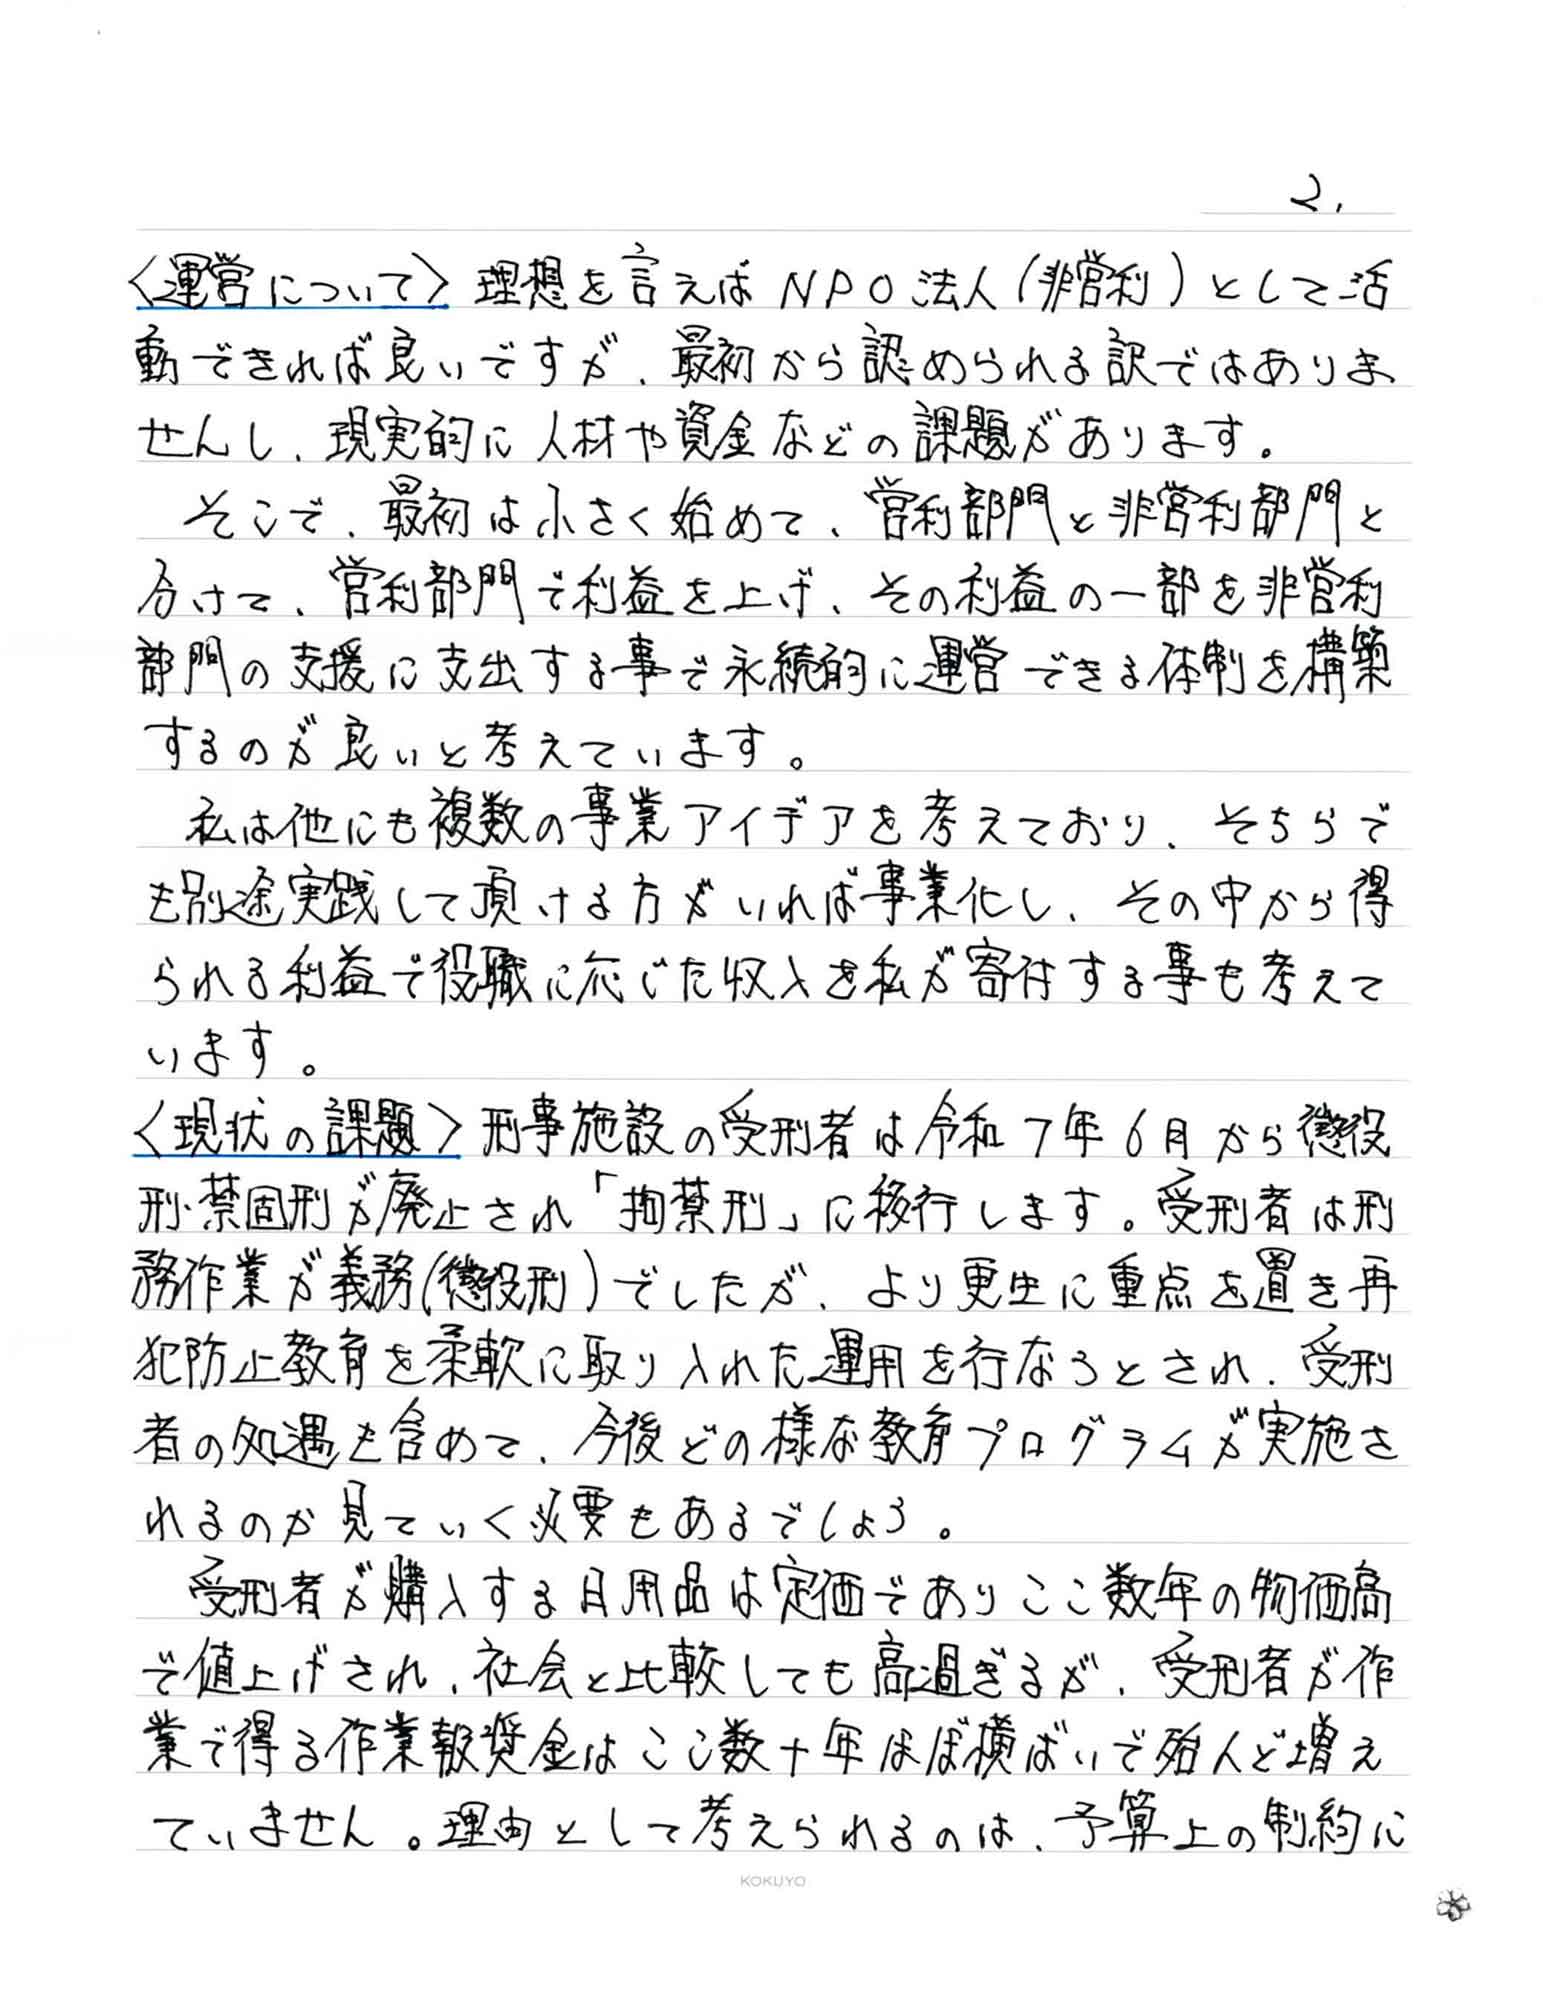 2.
〈運営について〉理想を言えばNPO法人(非営利)として活
動できれば良いですが、最初から認められる訳ではありま
せんし、現実的に人材や資金などの課題があります。
そこで、最初は小さく始めて、営利部門と非営利部門と
分けて、営利部門で利益を上げ、その利益の一部を非営利
部門の支援に支出する事で永続的に運営できる体制を構築
するのが良いと考えています。
私は他にも複数の事業アイデアを考えており、そちらで
も別途実践して頂ける方がいれば事業化し、その中から得
られる利益で役職に応じた収入を私が寄付する事も考えて
います。
〈現状の課題〉刑事施設の受刑者は令和7年6月から懲役
刑・禁固刑が廃止され「拘禁刑」に移行します。受刑者は刑
務作業が義務(懲役刑)でしたが、より更生に重点を置き再
犯防止教育を柔軟に取り入れた運用を行なうとされ、受刑
者の処遇も含めて、今後どの様な教育プログラムが実施さ
れるのか見ていく必要もあるでしょう。
受刑者が購入する日用品は定価でありここ数年の物価高
で値上げされ、社会と比較しても高過ぎるが、受刑者が作
業で得る作業報奨金はここ数十年ほぼ横ばいで殆んど増え
ていません。理由として考えられるのは、予算上の制約に
KOKUYO